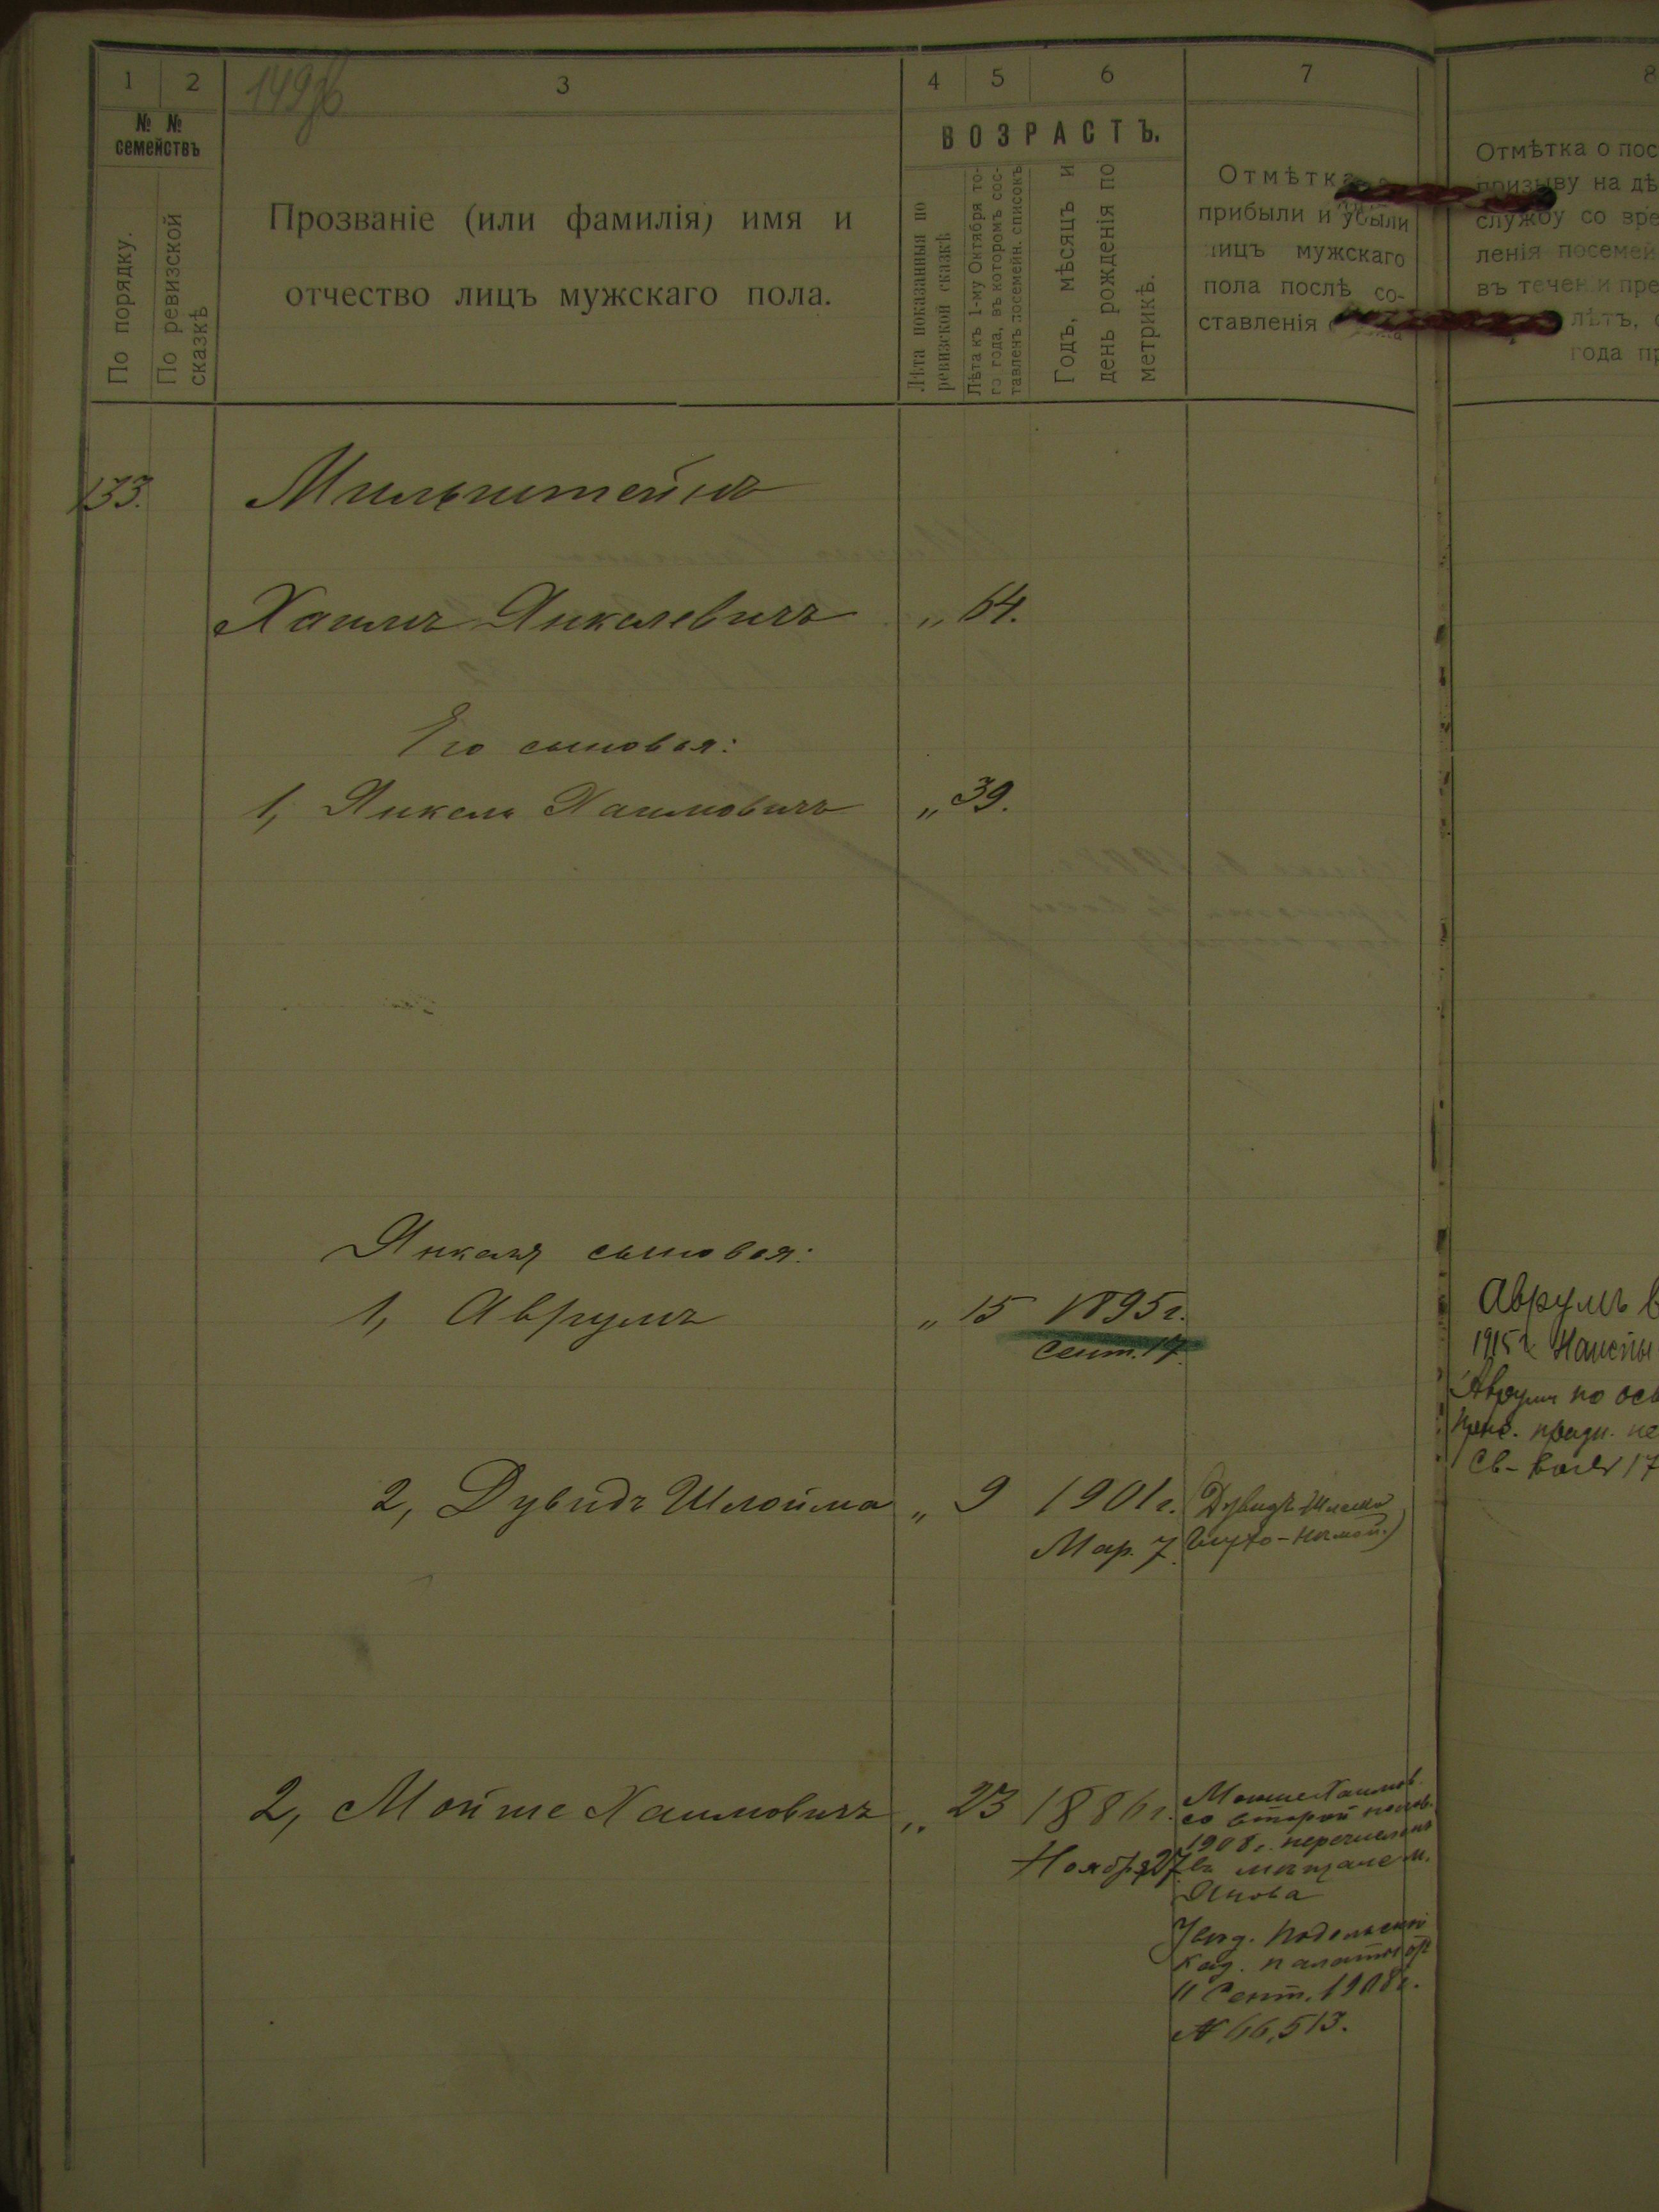 1 2 3 4 5 6 7 8
149об
№ № семействъ
По порядку.
По ревизской сказкѣ
Прозваніе (или фамилія) имя и
отчество лицъ мужскаго пола.
ВОЗРАСТЪ.
Лѣта показанныя по
ревизской сказкѣ
Лѣта къ 1-му Октября то-
го года, въ которомъ сос-
тавленъ посемейн. списокъ
Годъ, мѣсяцъ и
день рожденія по
метрикѣ.
Отмѣтка
прибыли и убыли
лицъ мужскаго
пола послѣ со-
ставленія
Отмѣтка о пос
призыву на дѣ
службу со вре
ленія посемей
въ течен и пре
лѣтъ,
года пр
133. Мильштейнъ
Хаимъ Янкелевичъ „ 64.
Его сыновья:
1, Янкель Хаимовичъ „ 39.
Янкеля сыновья:
1, Аврумъ „ 15 1895г.
Сент. 17.
Аврумъ в
1915 г.
Аврумъ по
Св-во 17
2, Дувидъ Шлойма „ 9 1901г. (Дувидъ-Шлема
Мар. 7. глухо-нѣмой.)
2, Мойше Хаимовичъ „ 23 1886г.
Ноября 27
Мойше Хаимов.
со второй полов.
1908г. перечисленъ
въ мѣщане м.
Янова
Увед. Подольской
каз. палаты отъ
11 Сент. 1908г.
№ 66,513.